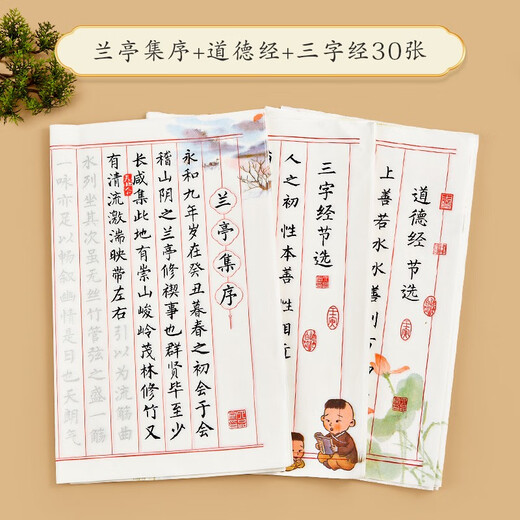 兰亭集序+道德经+三字经30张
兰亭集序
永和九年岁在癸丑暮春之初会于会
稽山阴之兰亭修禊事也群贤毕至少
长咸集此地有崇山峻岭茂林修竹又
有清流激湍映带左右引以为流觞曲
水列坐其次虽无丝竹管弦之盛一觞
一咏亦足以畅叙幽情是日也天朗气
三字经节选
人之初 性本善 性相近
道德经 节选
上善若水水善利